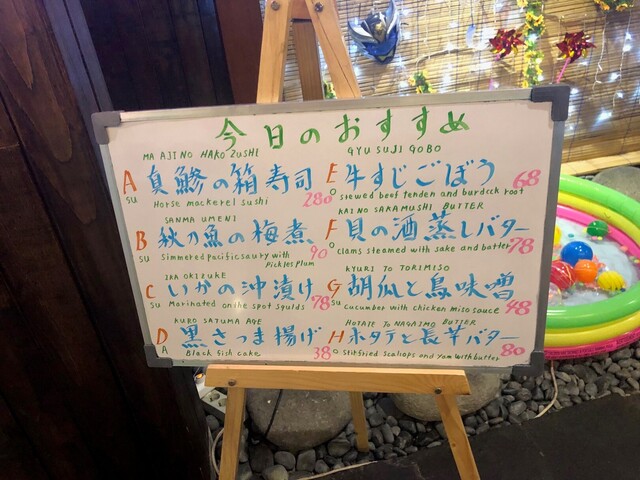 今日のおすすめ
MA AJI NO HAKO ZUSHI
A 真鯵の箱寿司 280
SU Horse mackerel sushi
SANMA UMENI
B 秋刀魚の梅煮 90
SU Simmered pacific saury with
Pickles plum
IKA OKIZUKE
C いかの沖漬け 78
SU Marinated on the spot squids
KURO SATUMA AGE
D 黒さつま揚げ 38
A Black fish cake
GYU SUJI GOBO
E 牛すじごぼう 68
O Stewed beef tendon and burdock root
KAI NO SAKAMUSHI BUTTER
F 貝の酒蒸しバター 78
O Clams steamed with sake and butter
KYURI TO TORIMISO
G 胡瓜と鳥味噌 48
SU Cucumber with chicken miso sauce
HOTATE TO NAGAIMO BUTTER
H ホタテと長芋バター 80
O Stirfried Scallops and Yam with butter